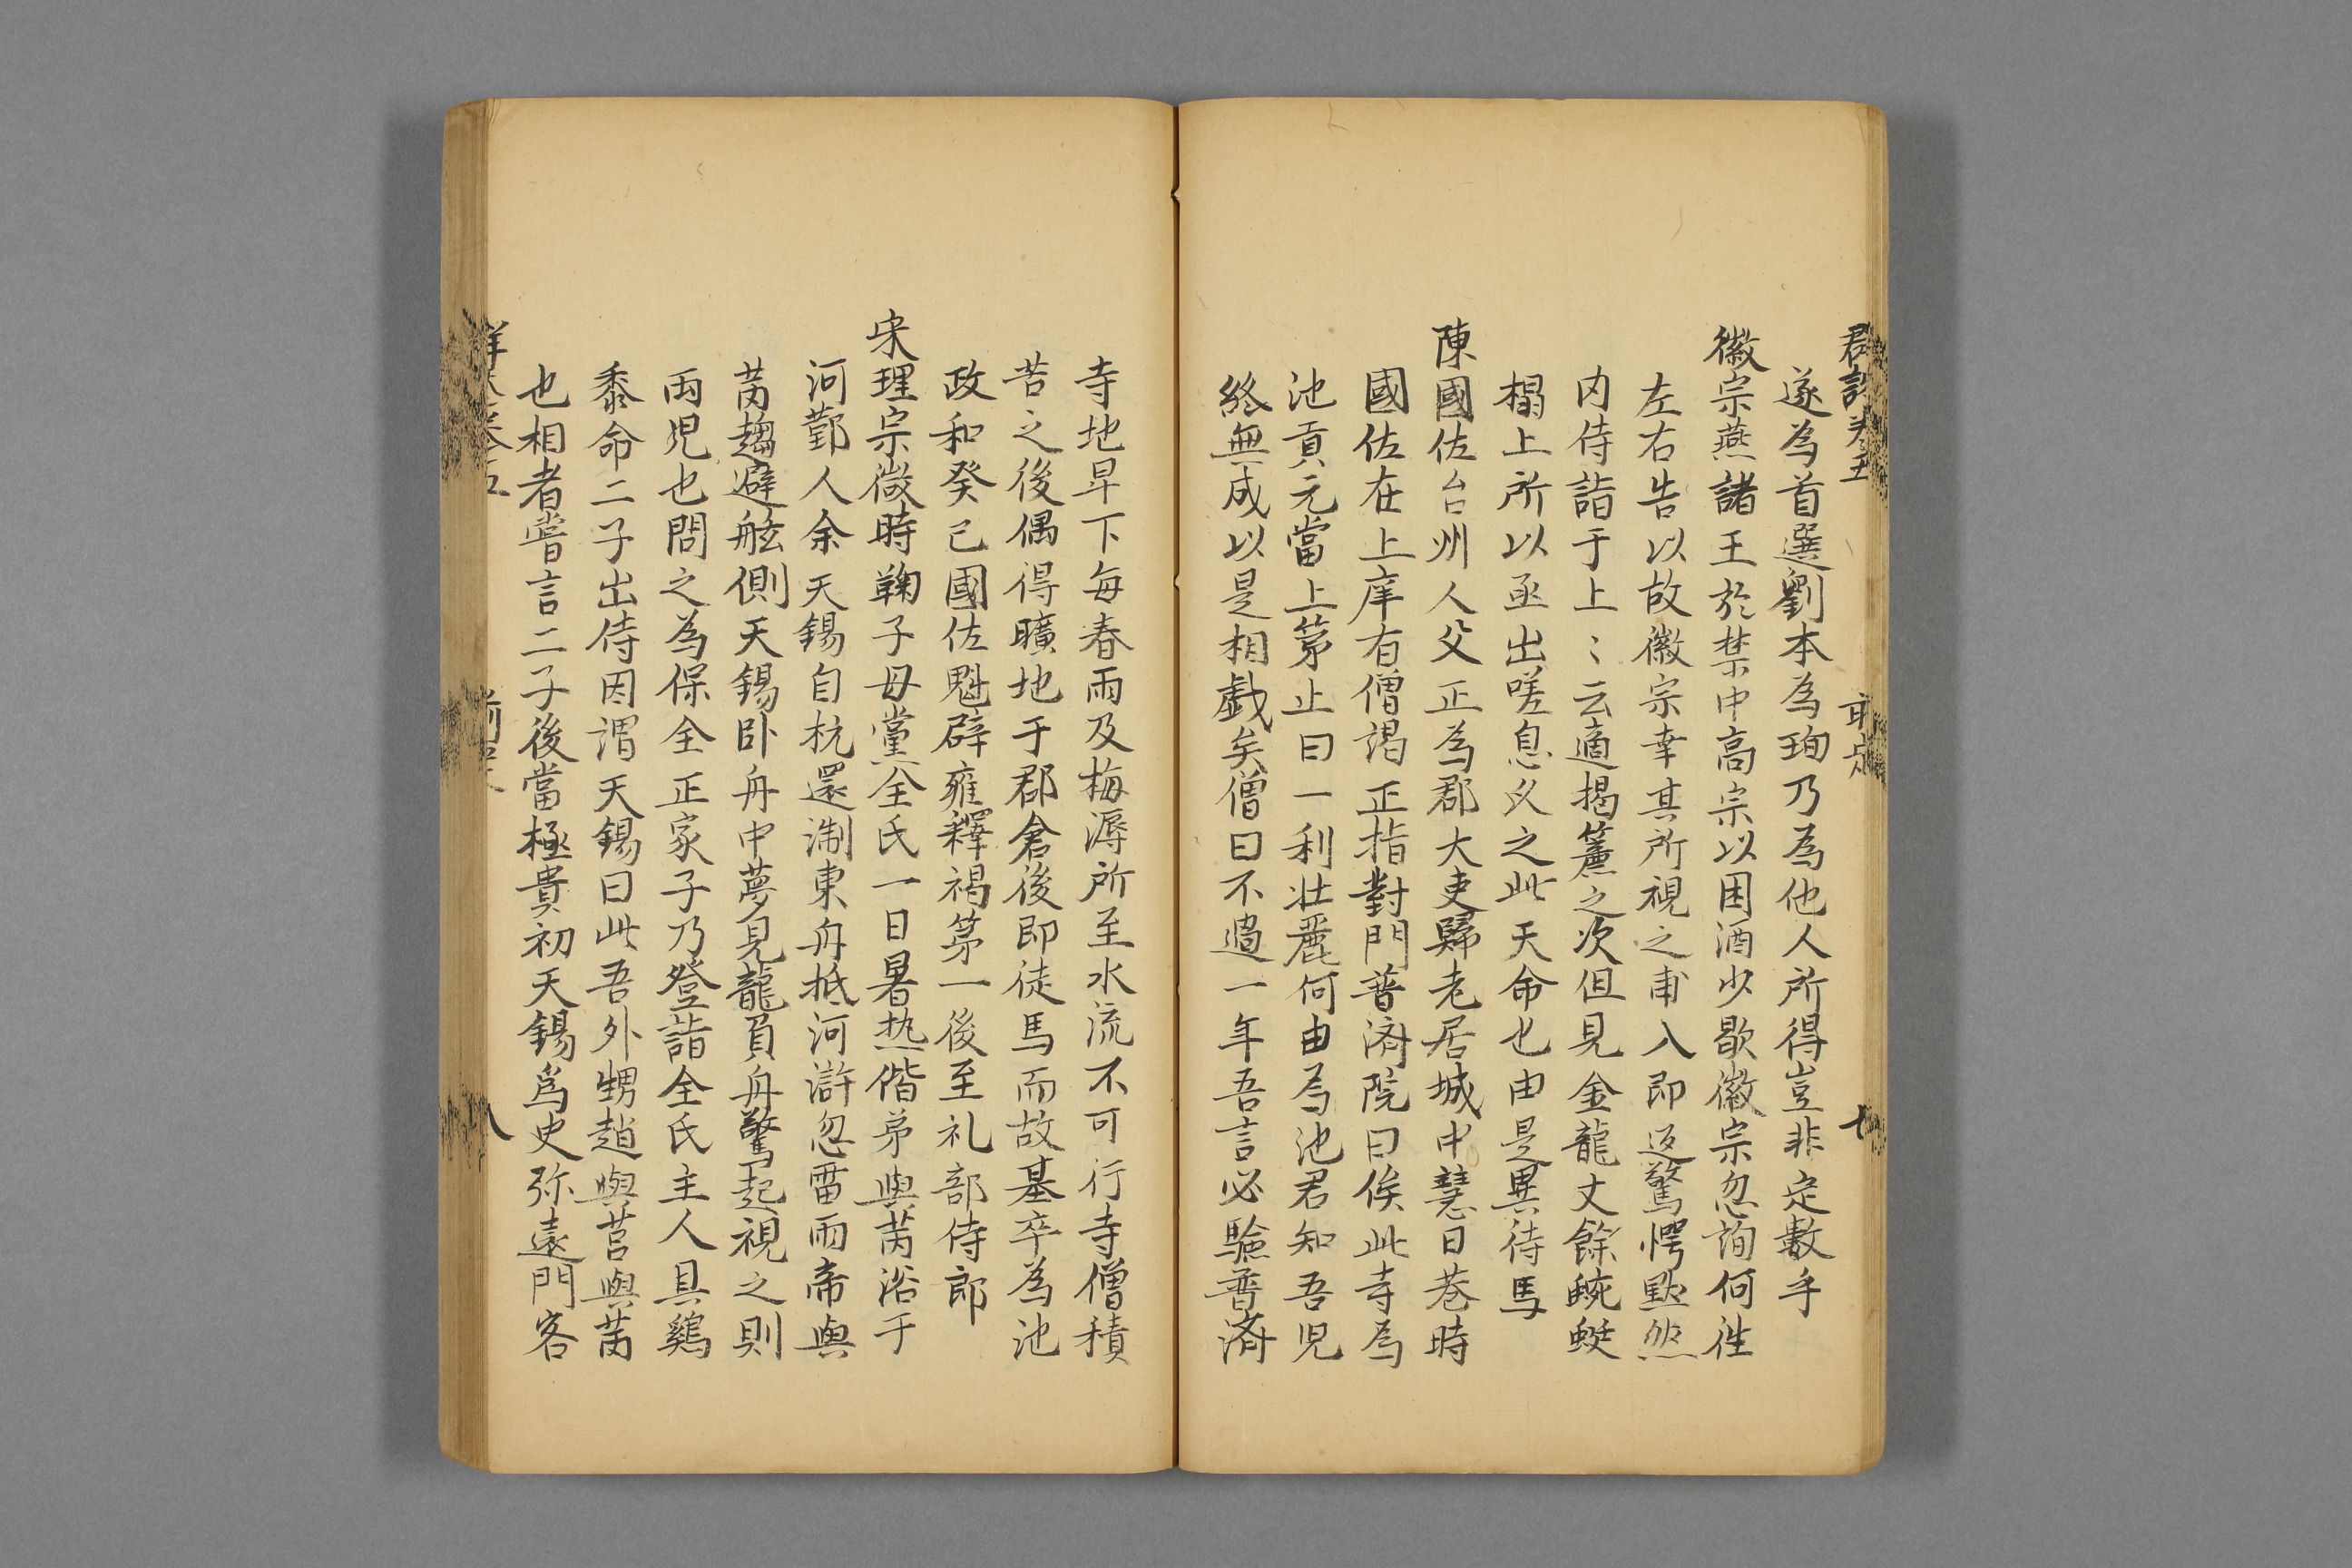 遂為首選劉本為珣乃為他人所得豈非定數乎
徽宗燕諸王於禁中高宗以困酒少歇徽宗忽詢何徃
左右告以故徽宗幸其所視之甫入即返驚愕默然
内侍詣于上〻云適揭簾之次但見金龍丈餘蜿蜒
榻上所以亟出嗟息久之此天命也由是異待焉
陳國佐台州人父正為郡大吏歸老居城中慧日巷時
國佐在上庠有僧謁正指對門普済院曰俟此寺為
池貢元當上第止曰一利壮麗何由為池君知吾児
終無成以是相戯矣僧曰不過一年吾言必驗普済
寺地早下每春雨及梅溽所至水流不可行寺僧積
苦之後偶得曠地于郡倉後即徒焉而故基卒為池
政和癸已國佐魁辟雍釋褐第一後至礼部侍郎
宋理宗微時鞠子母黨全氏一日暑热偕弟與芮浴于
河鄞人余天錫自杭還淛東舟抵河滸忽雷雨帝與
芮趨避舷側天錫卧舟中夢見龍負舟驚起視之則
兩児也問之為保全正家子乃登詣全氏主人具鷄
黍命二子出侍因謂天錫曰此吾外甥趙與莒與芮
也相者嘗言二子後當極貴初天錫為史弥遠門客